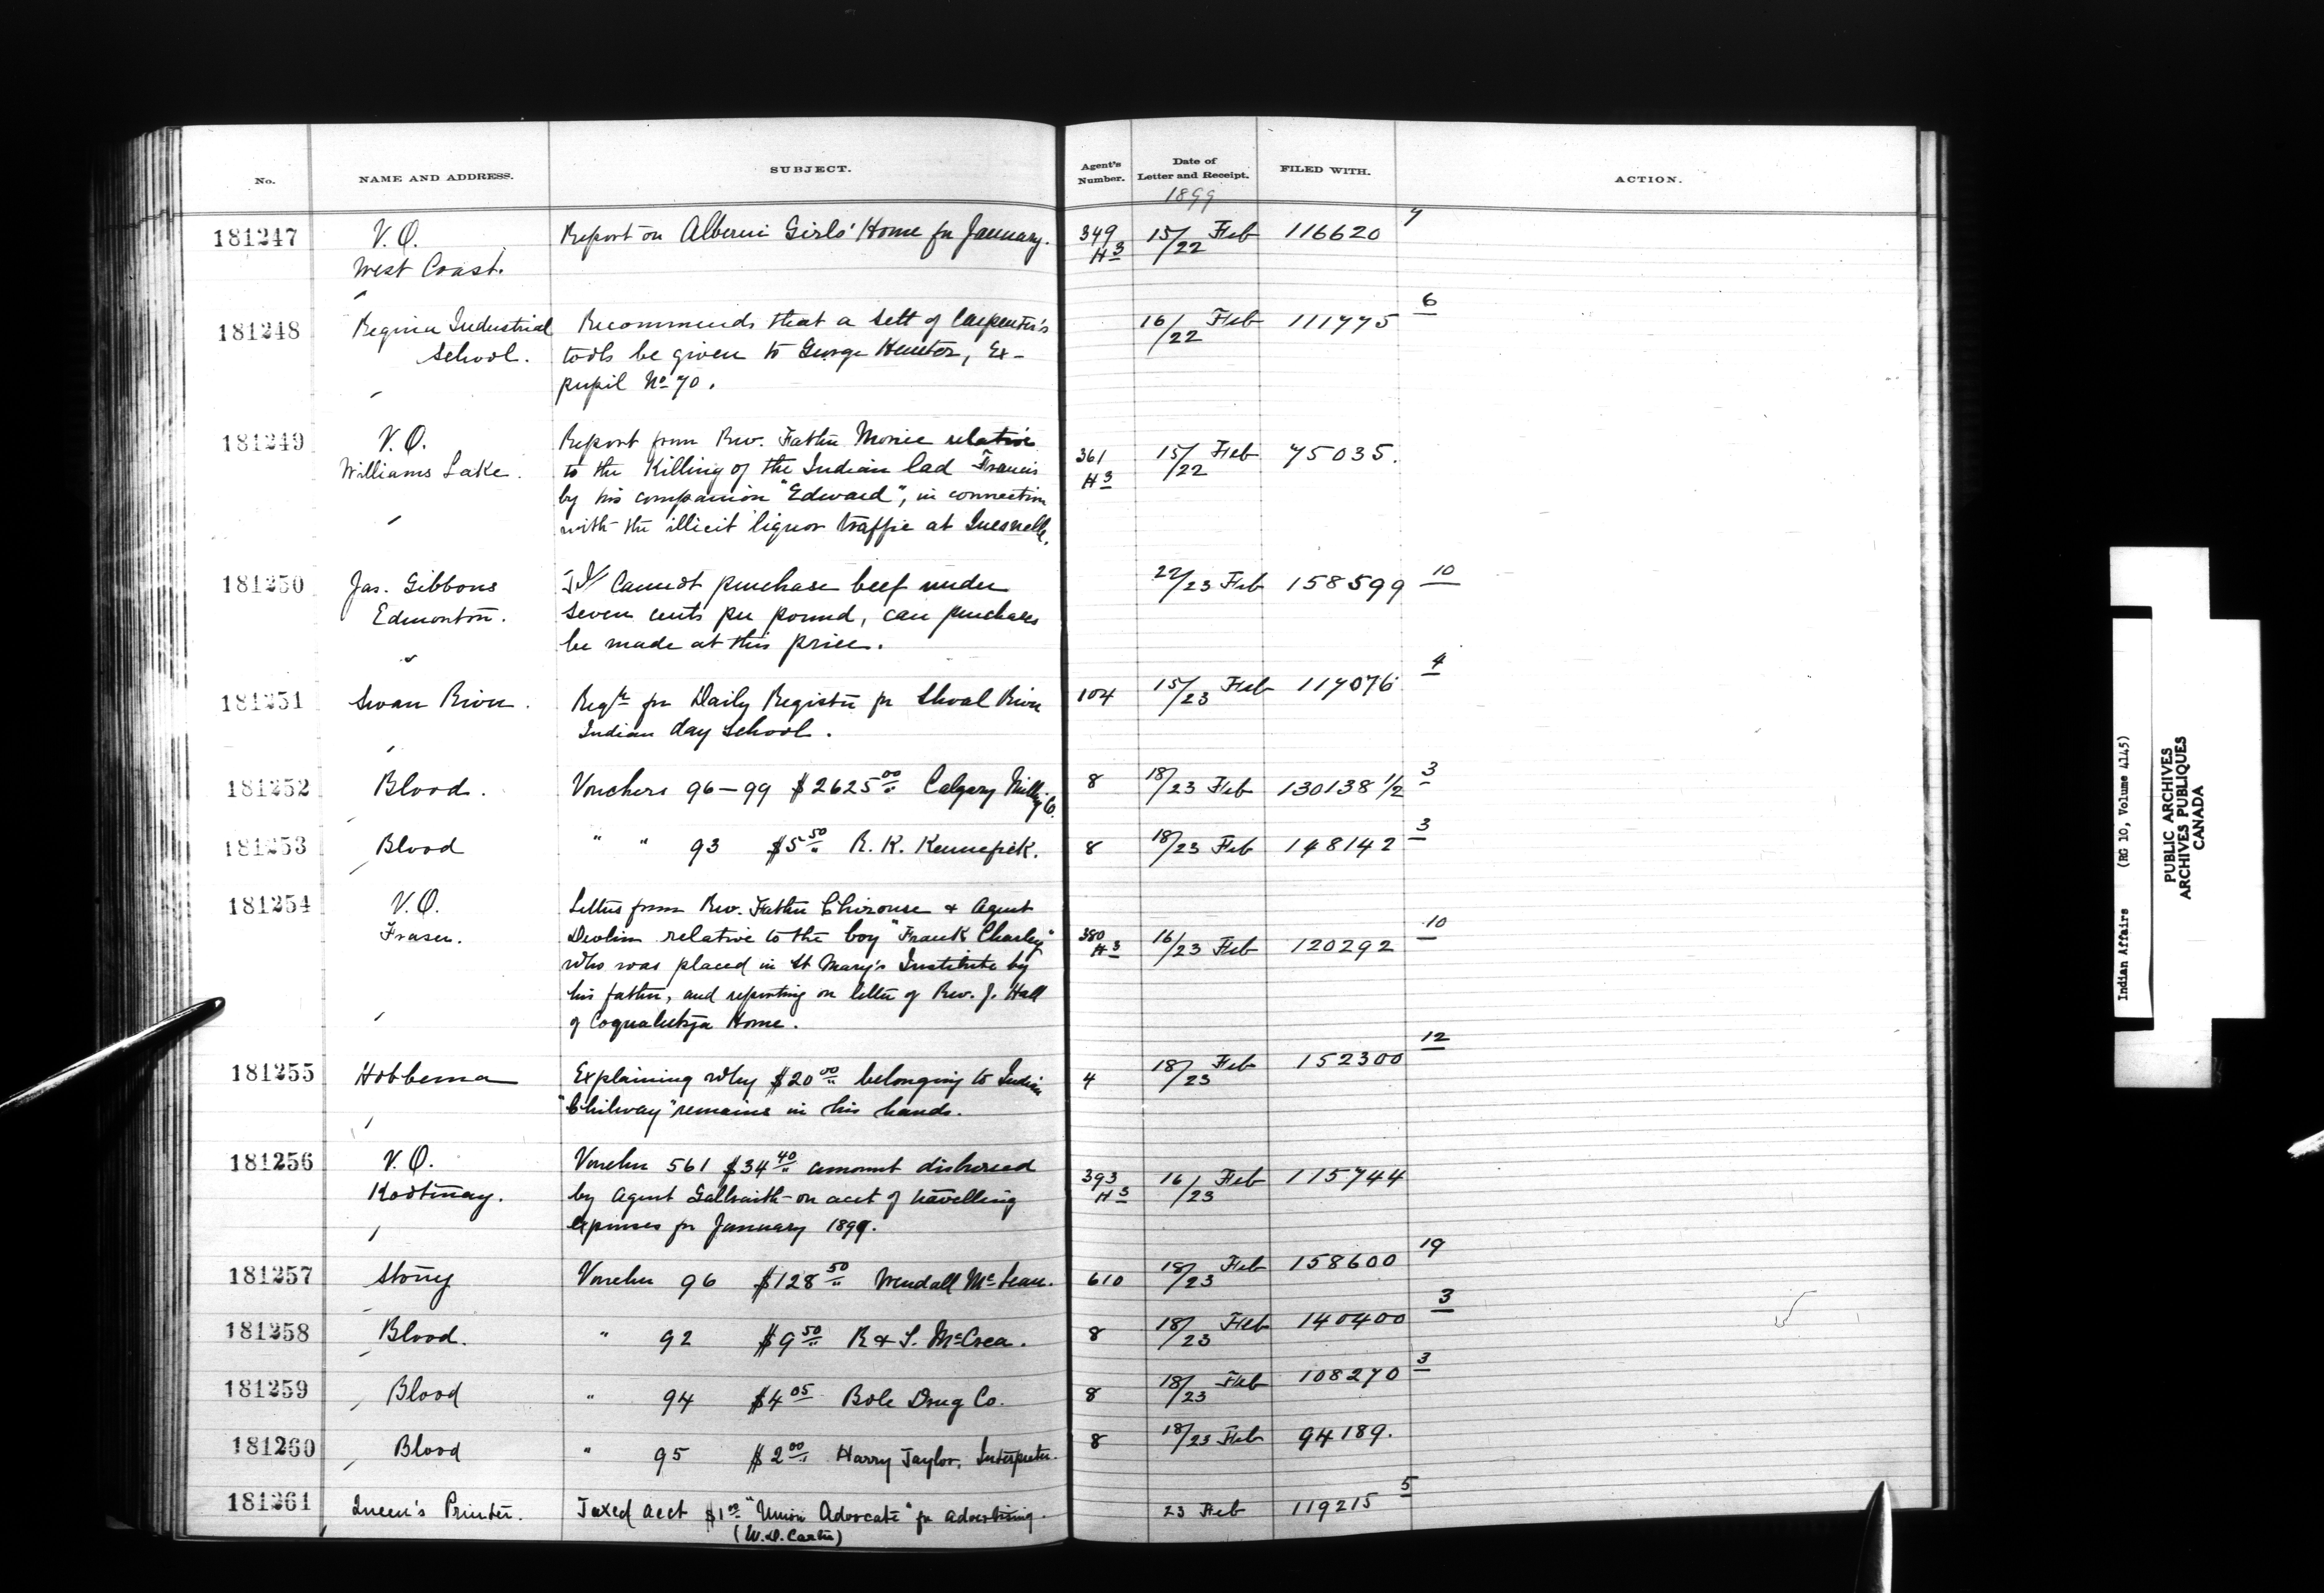 No. NAME AND ADDRESS. SUBJECT. Agent's Number. Date of Letter and Receipt. FILED WITH. ACTION.
1899
181247 V.O. Report on Alberni Girls' Home for January. 349 15/22 Feb 116620 7
West Coast. H3
181248 Regina Industrial Recommends that a sett of Carpenter's 16/22 Feb 111775 6
School. tools be given to George Hunter, Ex-
pupil No 70.
181249 V.O. Report from Rev. Father Morice relative 361 15/22 Feb 75035.
Williams Lake. to the Killing of the Indian lad Francis H3
by his companion "Edward", in connection
with the illicit liquor traffic at Quesnelle.
181250 Jas. Gibbons Cannot purchase beef under 22/23 Feb 158599 10
Edmonton. seven cents per pound, can purchases
be made at this price.
181251 Swan River. Reqn for Daily Register for Shoal River 104 15/23 Feb 117076 4
Indian day school.
181252 Blood. Vouchers 96-99 $2625 00 Calgary Millg Co. 8 18/23 Feb 130138 1/2 3
181253 Blood " " 93 $5 50 R. K. Kennefick. 8 18/23 Feb 148142 3
181254 V.O. Letters from Rev. Father Chirouse & Agent
Fraser. Devlin relative to the boy "Frank Charley" 380 H3 16/23 Feb 120292 10
who was placed in St Mary's Institute by
his father, and reporting on letter of Rev. J. Hall
of Coqualeetza Home.
181255 Hobbema Explaining why $20 00 belonging to Indian 4 18/23 Feb 152300 12
remains in his hands.
181256 V.O. Voucher 561 $34 40 amount disbursed 393 16/23 Feb 115744
Kootenay. by Agent Galbraith on acct of travelling H3
expenses for January 1899.
181257 Stony Voucher 96 $128 50 Wendall McLean. 610 18/23 Feb 158600 19
181258 Blood. " 92 $9 50 R & S. McCrea. 8 18/23 Feb 140400 3
181259 Blood " 94 $4 05 Bole Drug Co. 8 18/23 Feb 108270 3
181260 Blood " 95 $2 00 Harry Taylor, Interpreter. 8 18/23 Feb 94189.
181261 Queen's Printer. Taxed acct "Union Advocate" for advertising. 23 Feb 119215 5
(W. Carter)
Indian Affairs (RG 10, Volume 4145)
PUBLIC ARCHIVES
ARCHIVES PUBLIQUES
CANADA